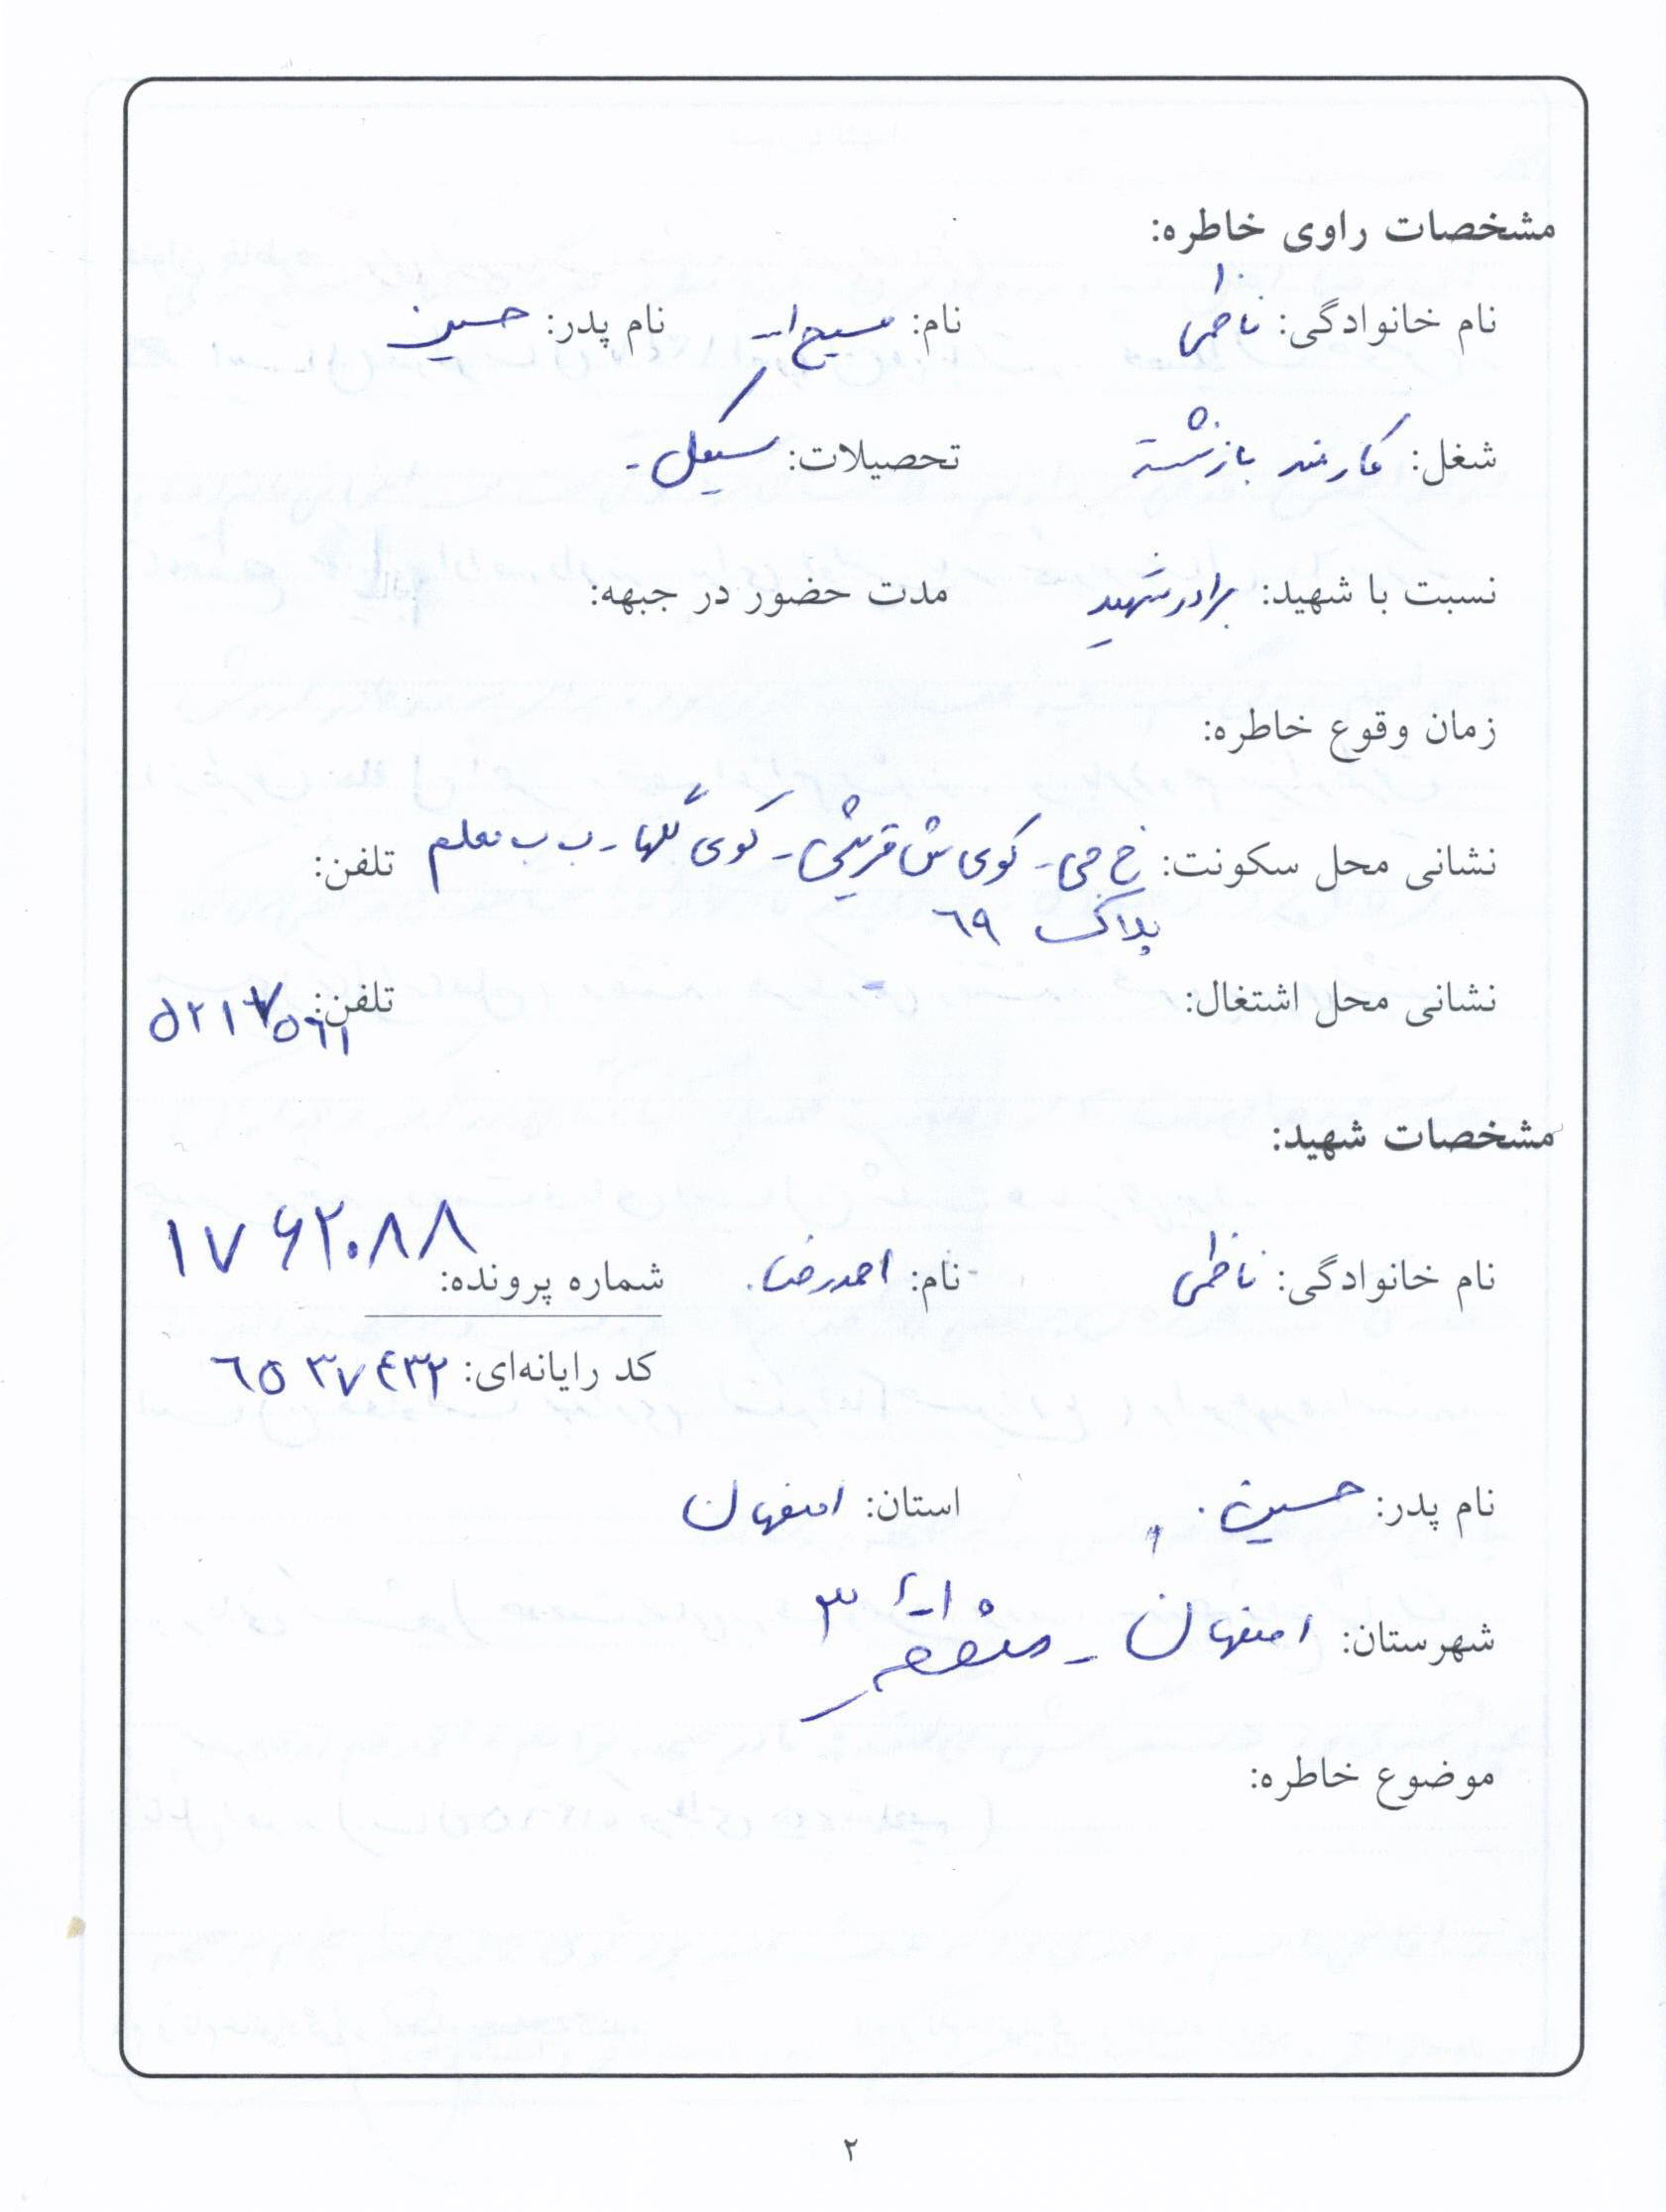 مشخصات راوی خاطره:
نام خانوادگی: ناظمی نام: مسیح ا... نام پدر: حسین
شغل: کارمند بازنشسته تحصیلات: سیکل -
نسبت با شهید: برادر شهید مدت حضور در جبهه:
زمان وقوع خاطره:
نشانی محل سکونت: خ جی - کوی ش قریشی - کوی گلها - ب ب معلم تلفن:
پلاک ٦٩
نشانی محل اشتغال: - تلفن: ٥٢١٧٥٦١
مشخصات شهید:
نام خانوادگی: ناظمی نام: احمدرضا شماره پرونده: ۱۷۶۲۰۸۸
کد رایانه‌ای: ٦٥٣٧٤٣٢
نام پدر: حسین استان: اصفهان
شهرستان: اصفهان - منطقه ۳
موضوع خاطره:
۲